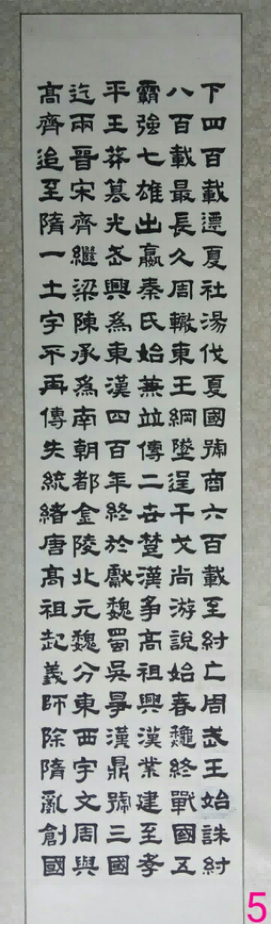 下四百載遷夏社湯伐夏國號商六百載至紂亡周武王始誅紂
八百載最長久周轍東王綱墜逞干戈尚游說始春龝終戰國五
霸強七雄出嬴秦氏始兼並傳二世楚漢爭高祖興漢業建至孝
平王莽篡光武興爲東漢四百年終於獻魏蜀吳爭漢鼎號三國
迄兩晉宋齊繼梁陳承爲南朝都金陵北元魏分東西宇文周與
高齊追至隋一土宇不再傳失統緒唐高祖起義師除隋亂創國
5